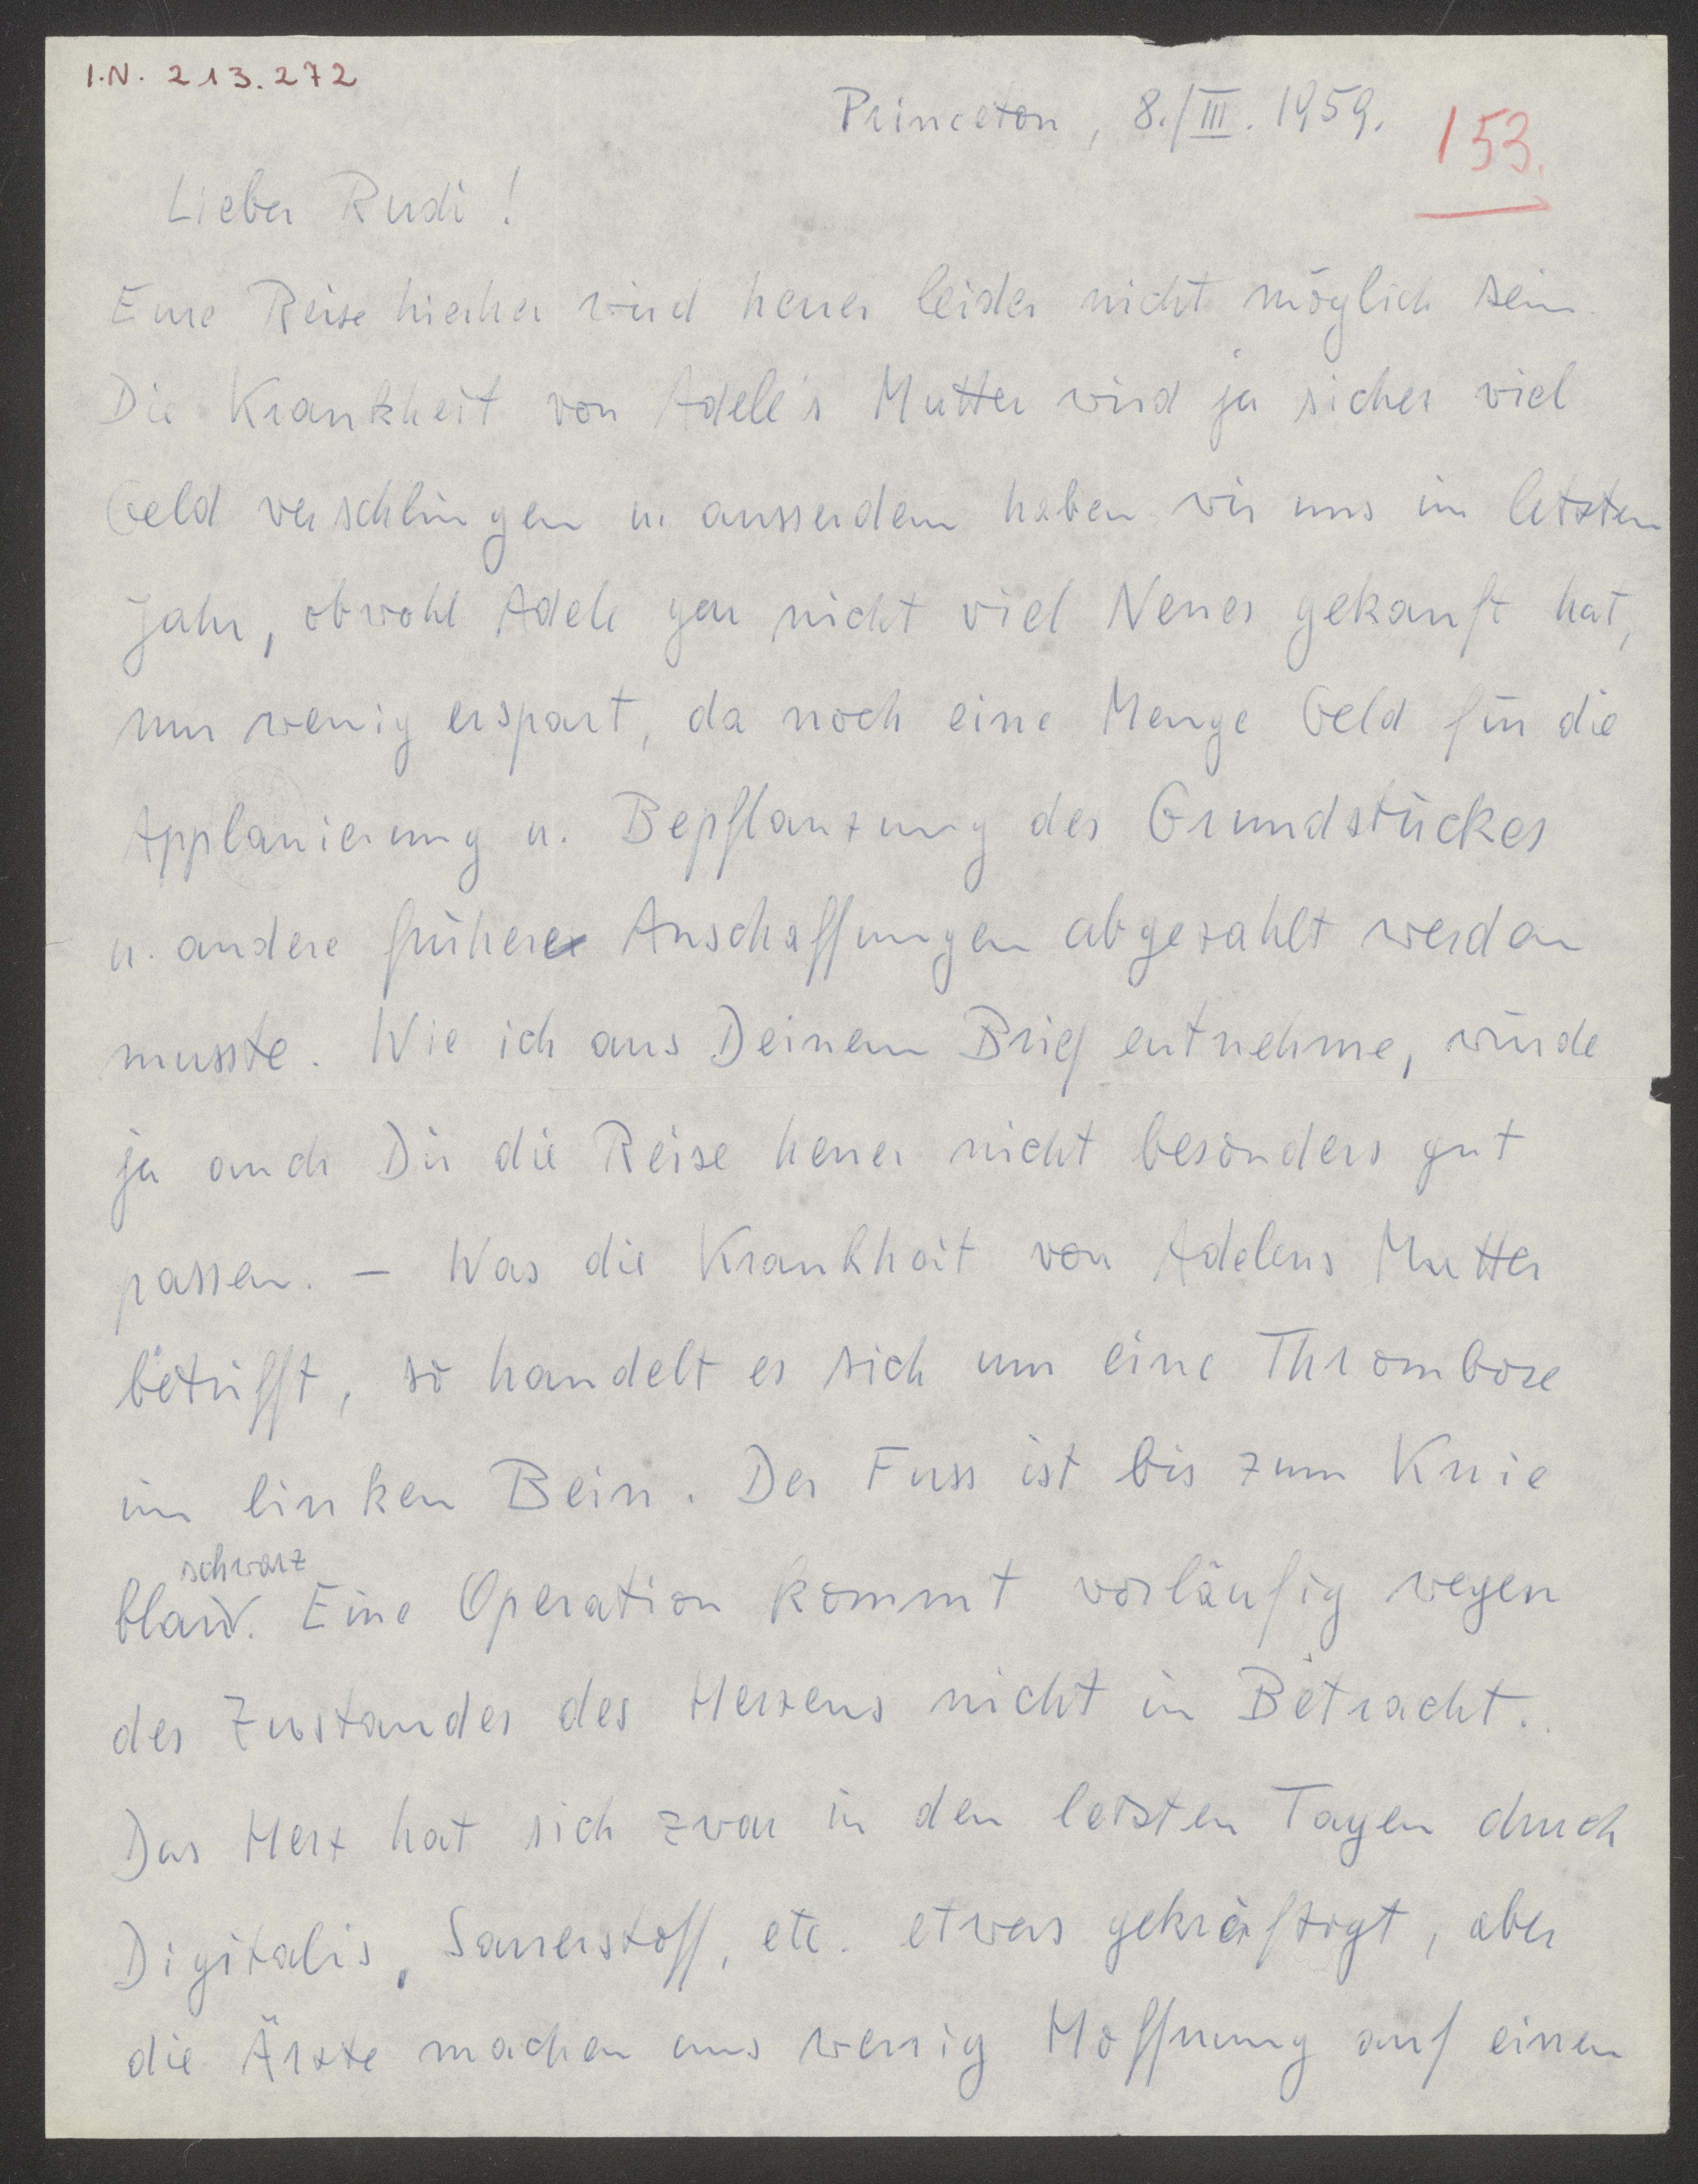 I.N. 213.272
Princeton, 8./III. 1959.
153.
Lieber Rudi!
Eure Reise hierher wird heuer leider nicht möglich sein.
Die Krankheit von Adele's Mutter wird ja sicher viel
Geld verschlingen u. ausserdem haben wir uns im letzten
Jahr, obwohl Adele gar nicht viel Neues gekauft hat,
nur wenig erspart, da noch eine Menge Geld für die
Applanierung u. Bepflanzung des Grundstückes
u. andere frühere Anschaffungen abgezahlt werden
musste. Wie ich aus Deinem Brief entnehme, würde
ja auch Dir die Reise heuer nicht besonders gut
passen. – Was die Krankheit von Adelens Mutter
betrifft, so handelt es sich um eine Thrombose
im linken Bein. Der Fuss ist bis zum Knie
schwarz
blau. Eine Operation kommt vorläufig wegen
des Zustandes des Herzens nicht in Betracht.
Das Herz hat sich zwar in den letzten Tagen durch
Digitalis, Sauerstoff, etc. etwas gekräftigt, aber
die Ärzte machen uns wenig Hoffnung auf einen